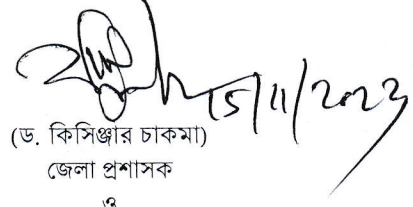 15/11/2023
(ড. কিসিঞ্জার চাকমা)
জেলা প্রশাসক
ও